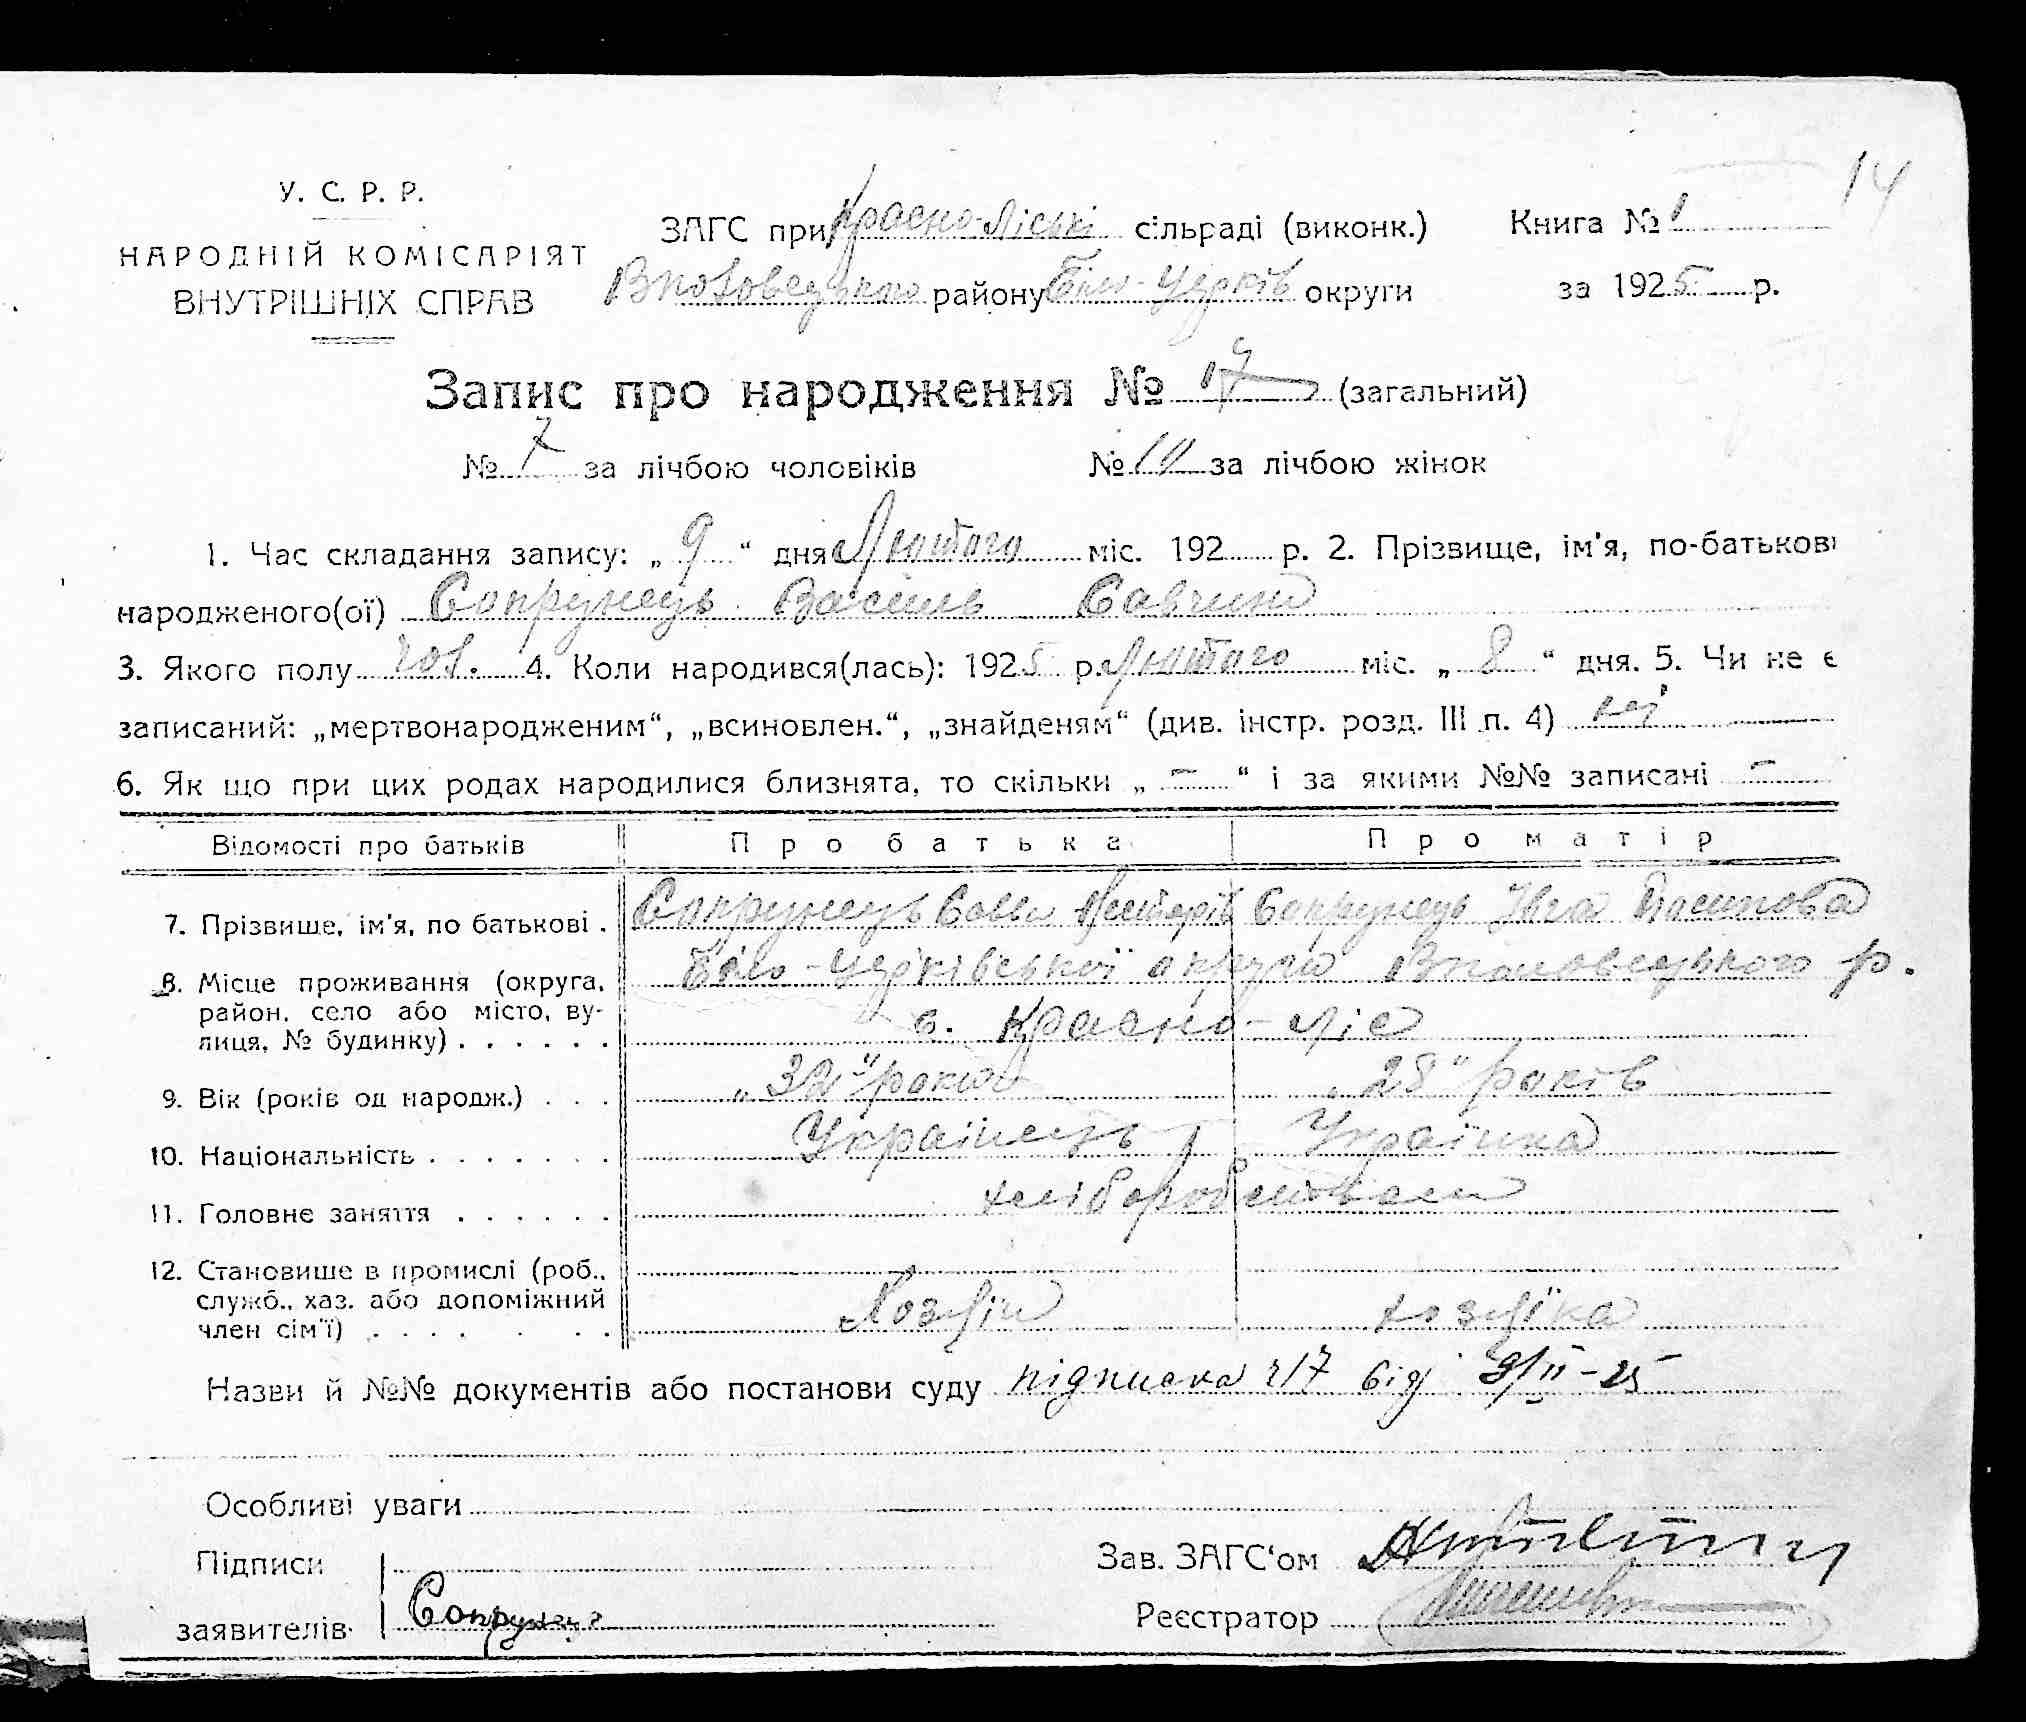 14
У. С. Р. Р.
НАРОДНІЙ КОМІСАРІЯТ
ВНУТРІШНІХ СПРАВ
ЗАГС при Красно-Ліські сільраді (виконк.) Книга № 1
району Біло-Церків округи за 1925 р.
Запис про народження № 17 (загальний)
№ 7 за лічбою чоловіків № 10 за лічбою жінок
1. Час складання запису: „ 9 “ дня Лютого міс. 192 р. 2. Прізвище, ім'я, по-батькові
народженого(ої) Сопрунець Василь Савчин
3. Якого полу чол. 4. Коли народився(лась): 1925 р. Лютого міс. „ 8 “ дня. 5. Чи не є
записаний: „мертвонародженим“, „всиновлен.“, „знайденям“ (див. інстр. розд. III п. 4) ні
6. Як що при цих родах народилися близнята, то скільки „ – “ і за якими №№ записані –
Відомості про батьків Про батька Про матір
7. Прізвище, ім'я, по батькові . Сопрунець Савва Нестерів Сопрунець Ївга
8. Місце проживання (округа, Біло-Церківської округи р.
район, село або місто, ву-
лиця, № будинку) . . . . . . с. Красно-ліс
9. Вік (років од народж.) . . . „32“ роки „28“ років
10. Національність . . . . . . . Українець Українка
11. Головне заняття . . . . . .
12. Становище в промислі (роб.,
служб., хаз. або допоміжний
член сім'ї) . . . . . . . Хозяїн хозяїка
Назви й №№ документів або постанови суду підписка ч17 від 9/II-25
Особливі уваги
Підписи
заявителів Сопрунец
Зав. ЗАГС‘ом
Реєстратор